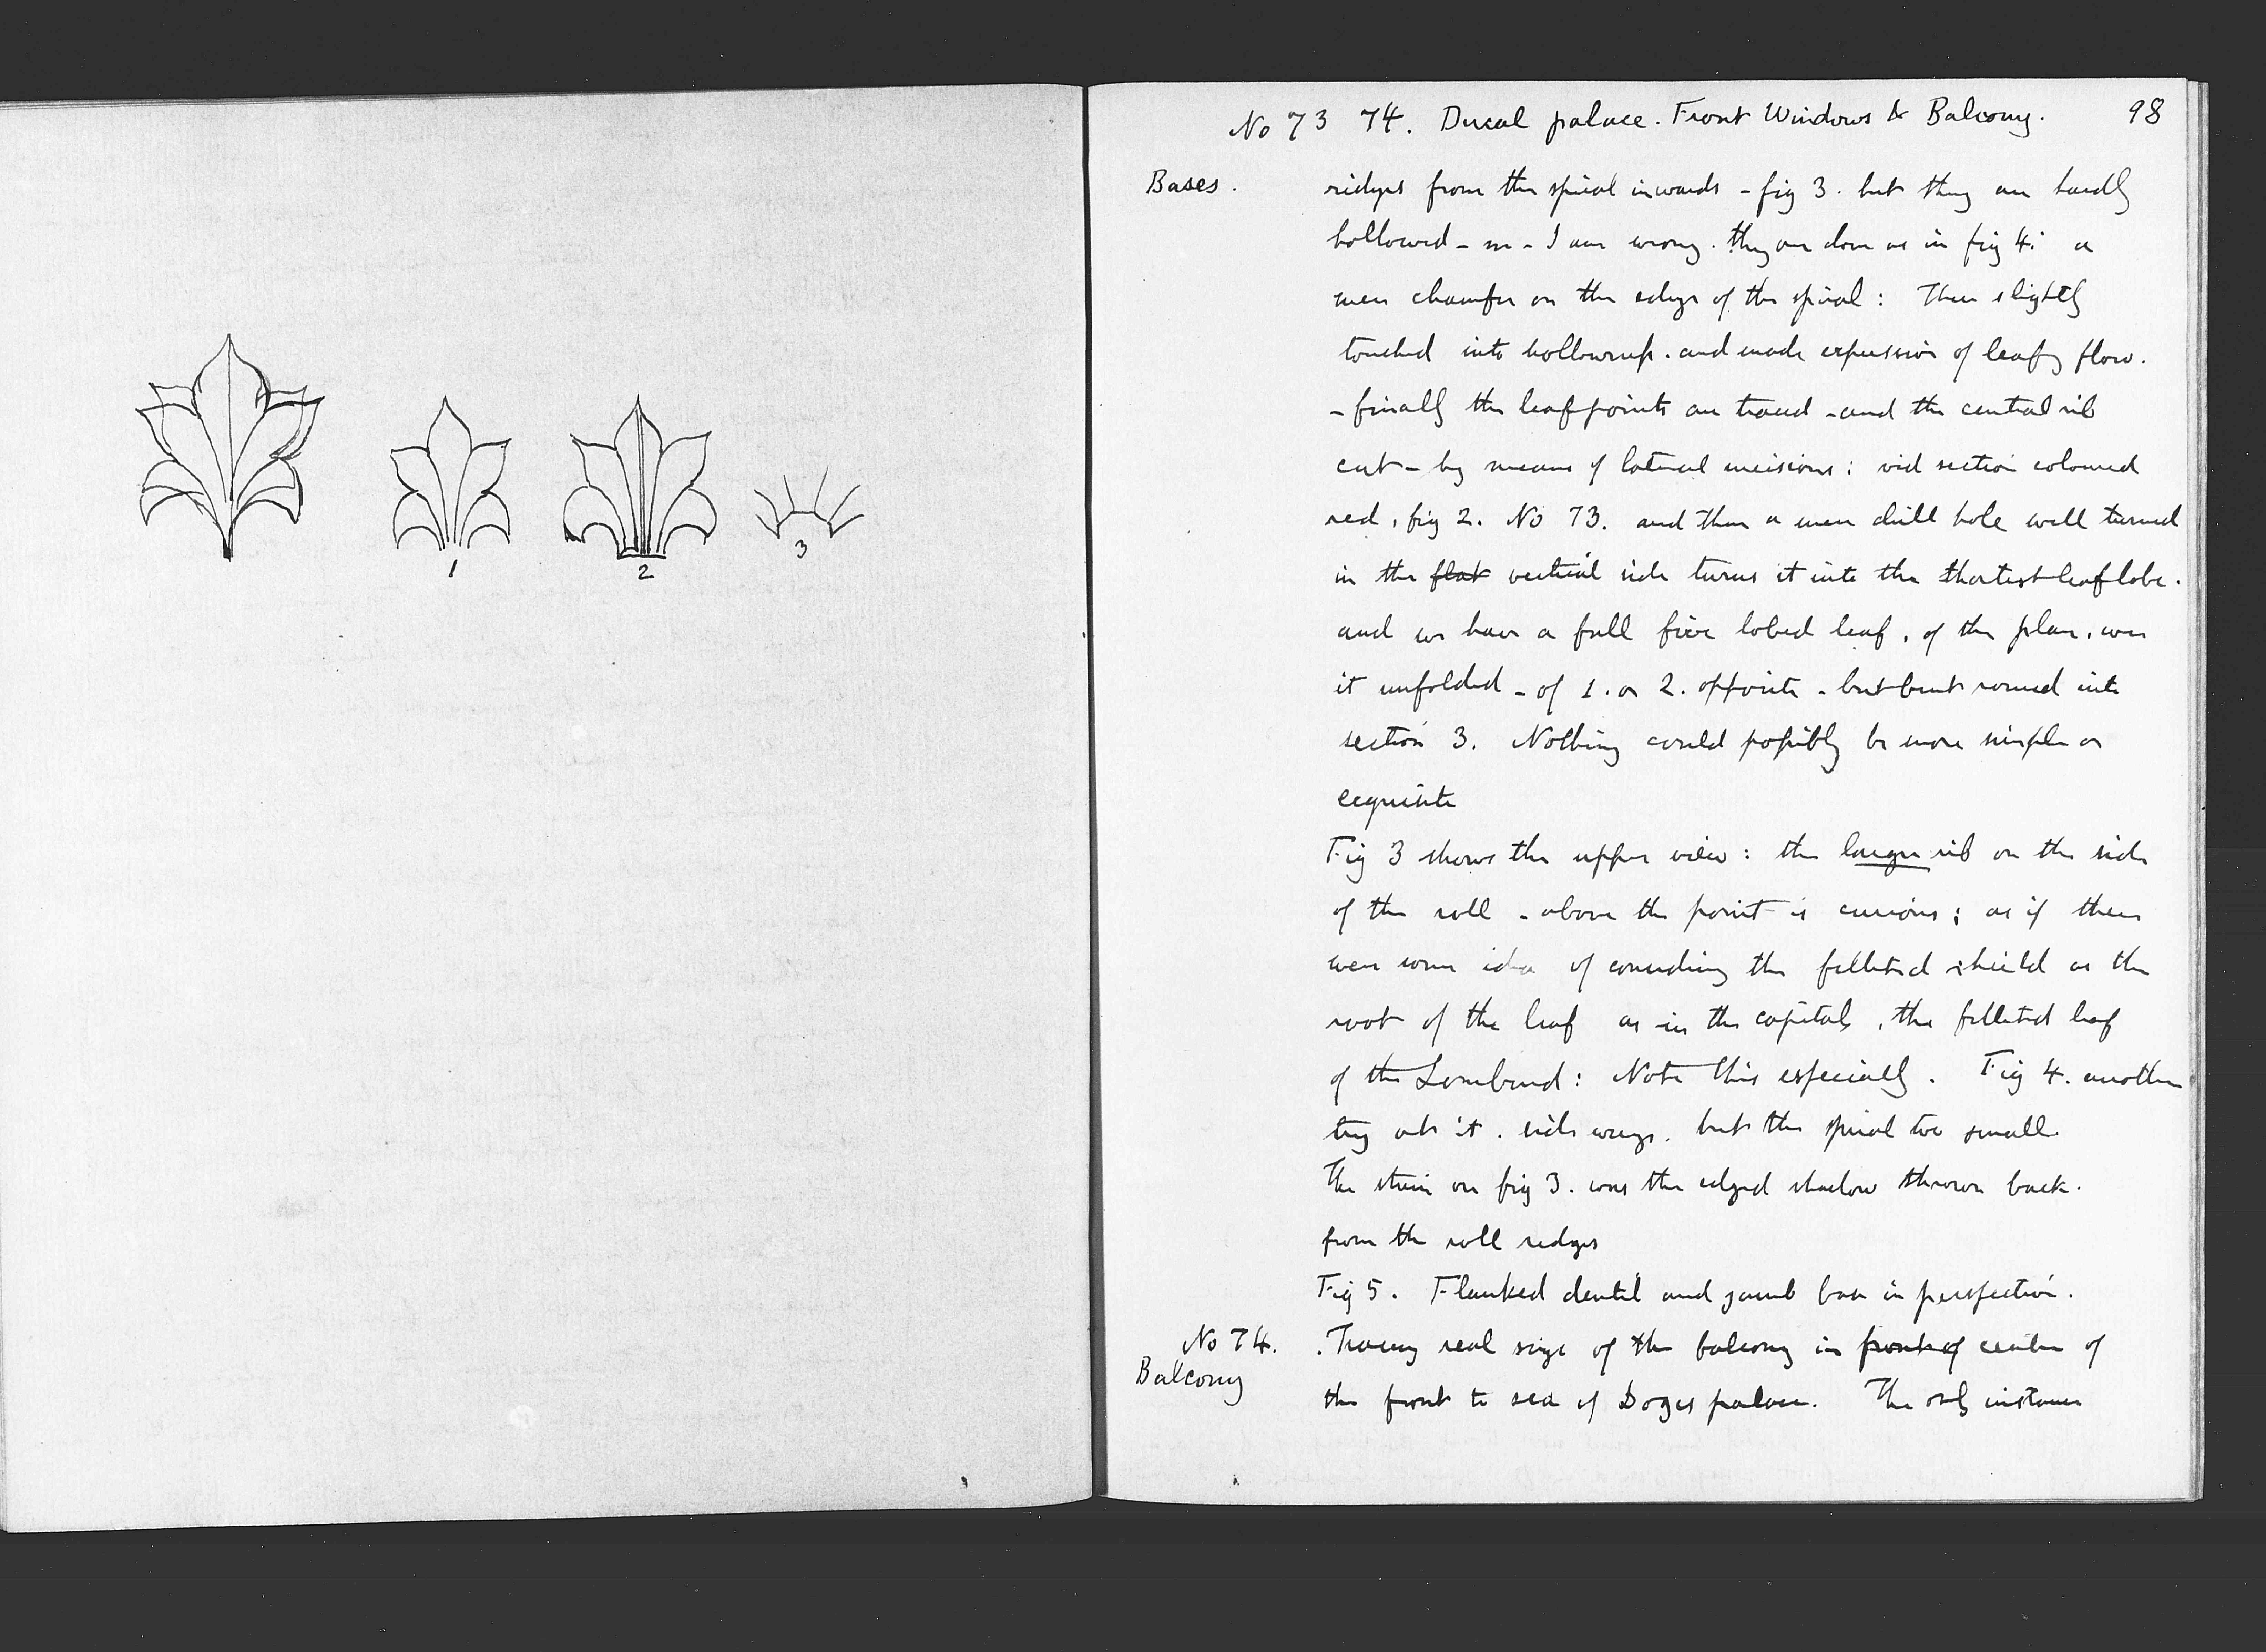 1
2
3
No 73 74. Ducal palace. Front Windows & Balcony. 98
Bases.
ridges from the spiral inwards - fig 3. but they are hardly
hollowed - no - I am wrong. they are done as in fig 4: a
mere chamfer on the edge of the spiral: Then slightly
touched into hollowness. and made expression of leafy flow.
- finally the leaf points are traced - and the central rib
cut - by means of lateral incisions: vid section coloured
red, fig 2. No 73. and then a mere drill hole well turned
in the flat vertical side turns it into the shortest leaf lobe.
and we have a full five lobed leaf, of the plan, were
it unfolded - of 1. or 2. opposite - but bent round into
section 3. Nothing could possibly be more simple or
exquisite
Fig 3 shows the upper view: the larger rib on the side
of the roll - above the point is curious; as if there
were some idea of considering the filleted shield as the
root of the leaf as in the capitals, the filleted leaf
of the Lombard: Note this especially. Fig 4. another
try at it. side ways. but the spiral too small.
The stain on fig 3. was the edged shadow thrown back.
from the roll ridges
Fig 5. Flanked dentil and jamb base in perfection.
No 74.
Balcony
. Tracery real size of the balcony in front of center of
the front to sea of Doges palace. The only instance